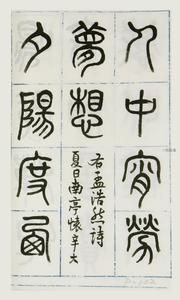 人中宵勞
夢想
右孟浩然詩
夏日南亭懷辛大
夕陽度西